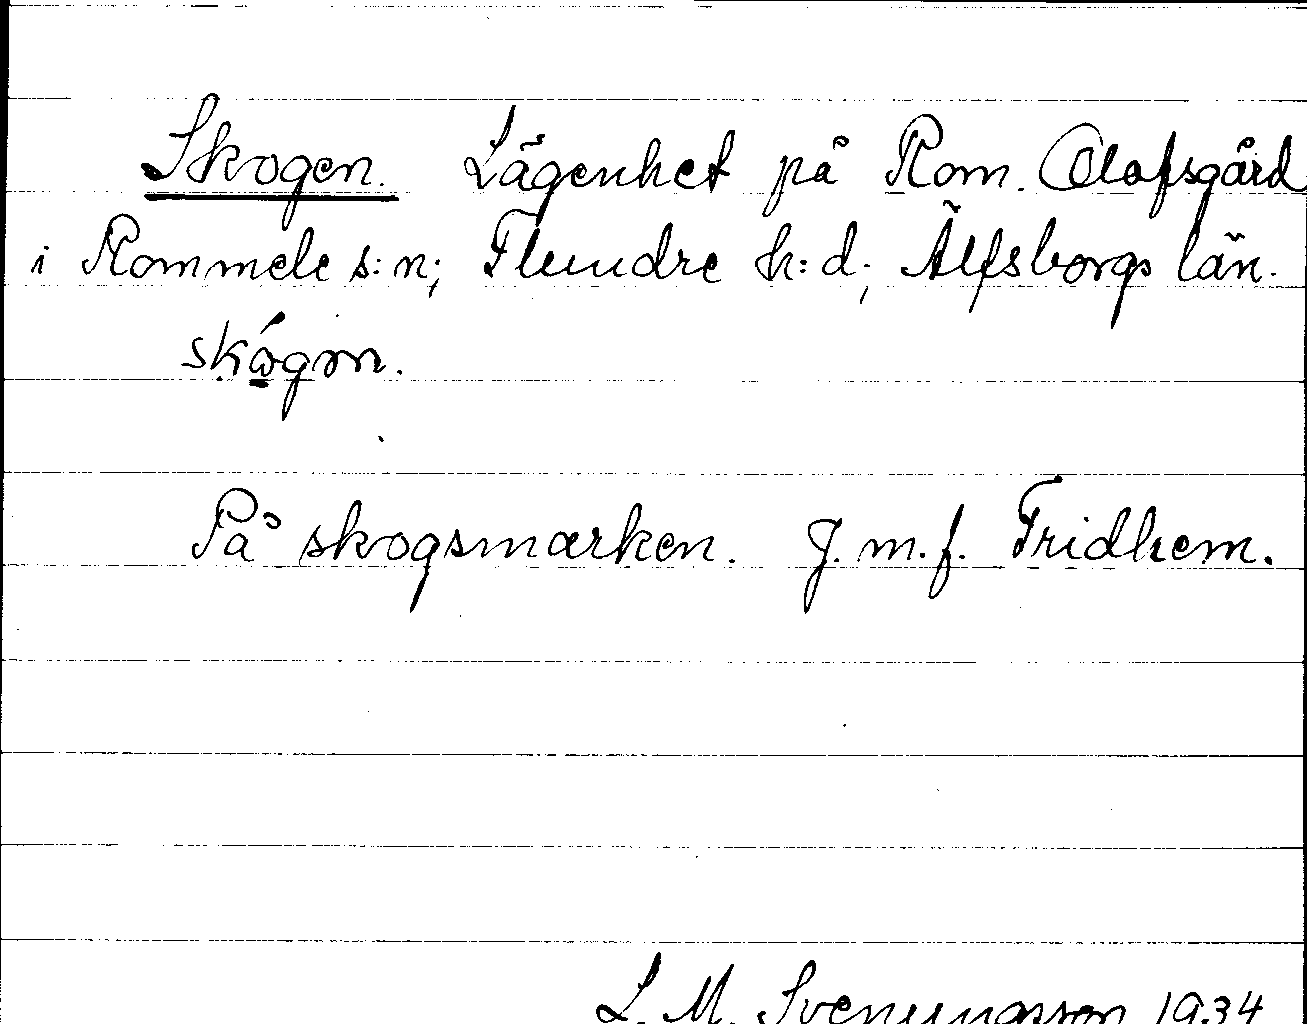 Skogen. Lägenhet på Rom. Olafsgård
i Rommele s:n; Flundre h:d; Älfsborgs län.
skógon.
På skogsmarken. J. m. f. Fridhem.
L. M. Svenungsson 1934